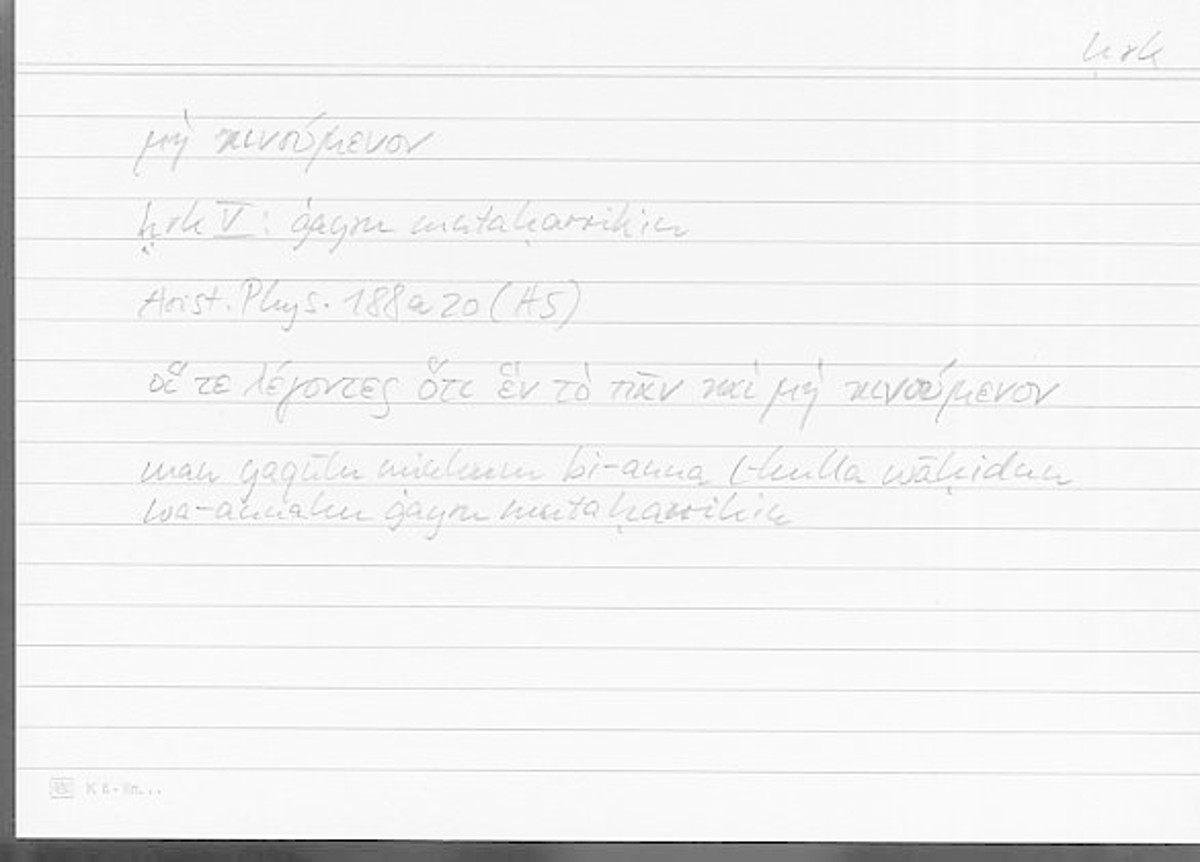 ḥrk
μὴ κινούμενον
ḥrk V: ġayru mutaḥarrikin
Arist. Phys. 188a20 (A5)
οἵ τε λέγοντες ὅτι ἓν τὸ πᾶν καὶ μὴ κινούμενον
man yaqūlu minhum bi-anna l-kulla wāḥidun
wa-annahu ġayru mutaḥarrikin